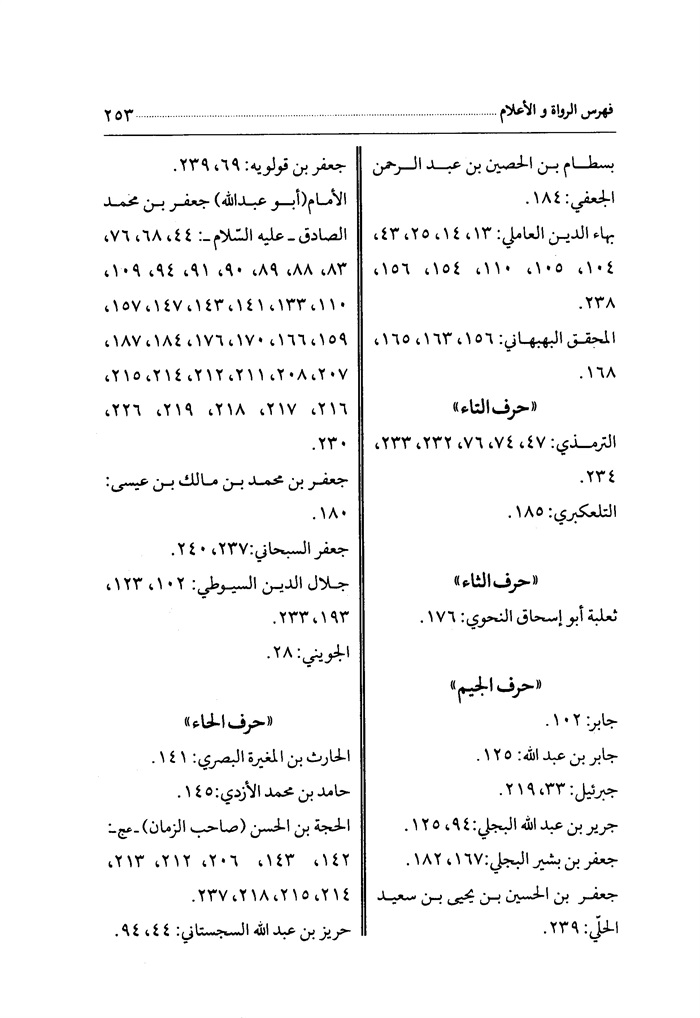 فهرس الرواة و الأعلام ... ٢٥٣
بسطام بن الحصين بن عبد الرحمن
الجعفي: ١٨٤.
بهاء الدين العاملي: ١٣، ١٤، ٢٥، ٤٣،
١٠٤، ١٠٥، ١١٠، ١٥٤، ١٥٦،
٢٣٨.
المحقق البهبهاني: ١٥٦، ١٦٣، ١٦٥،
١٦٨.
«حرف التاء»
الترمذي: ٤٧، ٧٤، ٧٦، ٢٣٢، ٢٣٣،
٢٣٤.
التلعكبري: ١٨٥.
«حرف الثاء»
ثعلبة أبو إسحاق النحوي: ١٧٦.
«حرف الجيم»
جابر: ١٠٢.
جابر بن عبد الله: ١٢٥.
جبرئيل: ٣٣، ٢١٩.
جرير بن عبد الله البجلي: ٩٤، ١٢٥.
جعفر بن بشير البجلي: ١٦٧، ١٨٢.
جعفر بن الحسين بن يحيى بن سعيد
الحلّي: ٢٣٩.
جعفر بن قولويه: ٦٩، ٢٣٩.
الأمام(أبو عبدالله) جعفر بن محمد
الصادق ـ عليه السّلام ـ: ٤٤، ٦٨، ٧٦،
٨٣، ٨٨، ٨٩، ٩٠، ٩١، ٩٤، ١٠٩،
١١٠، ١٣٣، ١٤١، ١٤٣، ١٤٧، ١٥٧،
١٥٩، ١٦٦، ١٧٠، ١٧٦، ١٨٤، ١٨٧،
٢٠٧، ٢٠٨، ٢١١، ٢١٢، ٢١٤، ٢١٥،
٢١٦، ٢١٧، ٢١٨، ٢١٩، ٢٢٦،
٢٣٠.
جعفر بن محمد بن مالك بن عيسى:
١٨٠.
جعفر السبحاني: ٢٣٧، ٢٤٠.
جلال الدين السيوطي: ١٠٢، ١٢٣،
١٩٣، ٢٣٣.
الجويني: ٢٨.
«حرف الحاء»
الحارث بن المغيرة البصري: ١٤١.
حامد بن محمد الأزدي: ١٤٥.
الحجة بن الحسن (صاحب الزمان) ـ عج ـ:
١٤٢، ١٤٣، ٢٠٦، ٢١٢، ٢١٣،
٢١٤، ٢١٥، ٢١٨، ٢٣٧.
حريز بن عبد الله السجستاني: ٤٤، ٩٤.